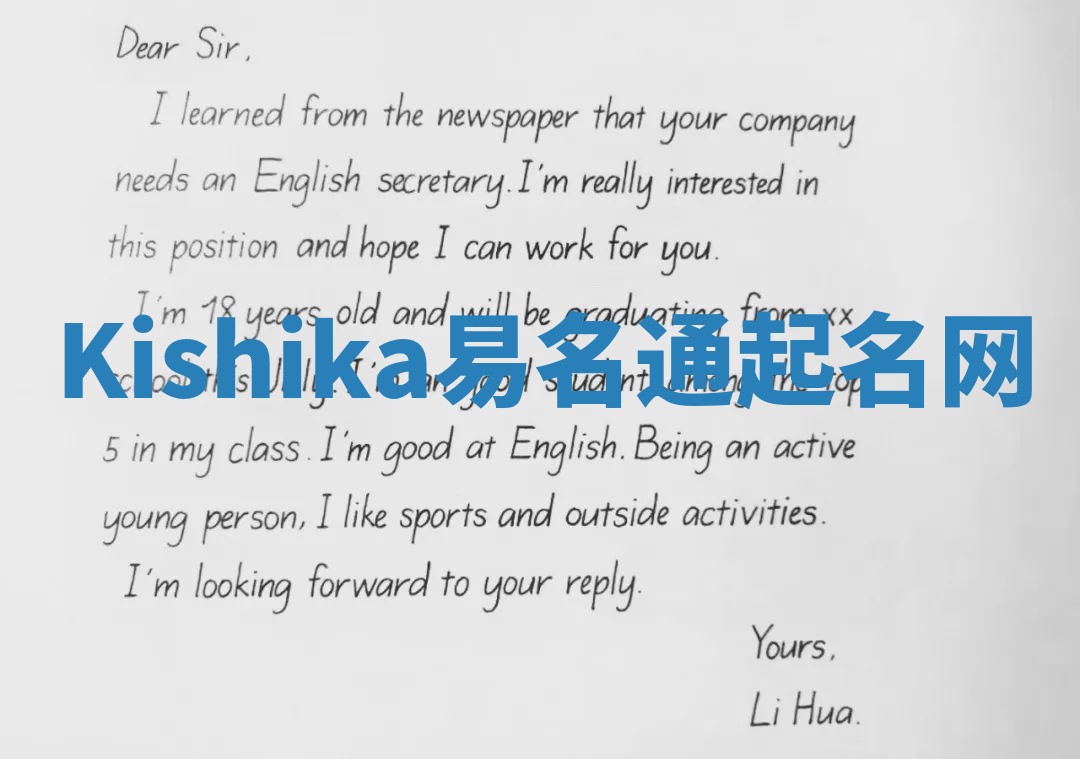 Dear Sir,
I learned from the newspaper that your company
needs an English secretary. I'm really interested in
this position and hope I can work for you.
I'm 18 years old and will be graduating from xx
Kishika易名通起名网
school this July. I'm a good student among the top
5 in my class. I'm good at English. Being an active
young person, I like sports and outside activities.
I'm looking forward to your reply.
Yours,
Li Hua.